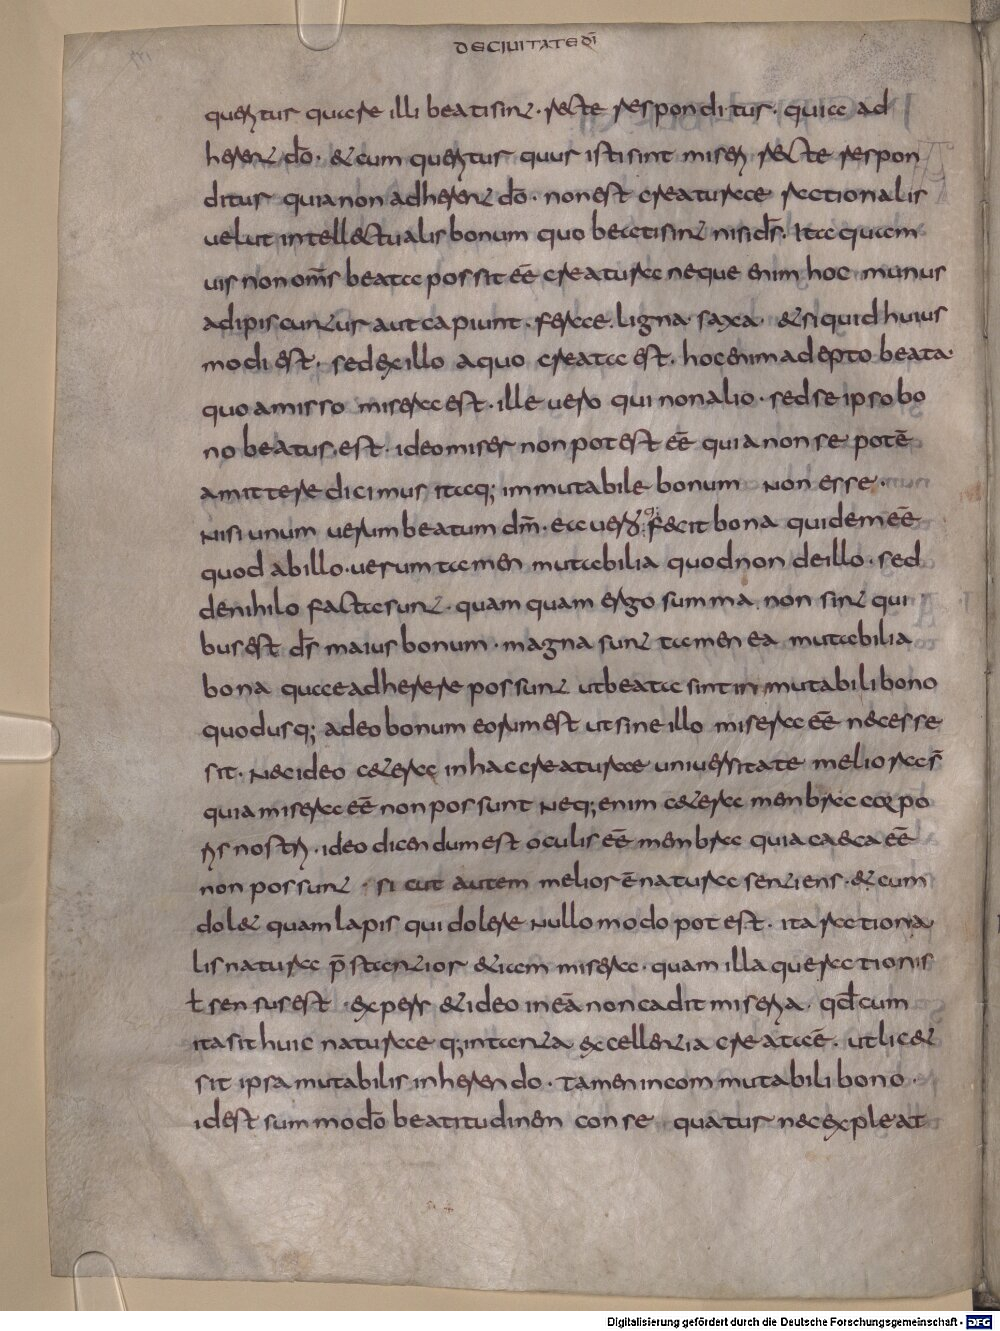 DE CIUITATE DĪ
queritur quare illi beati sint · recte responditur · quia ad
herent dō · et cum queritur quur isti sint miseri recte respon
ditur quia non adherent dō · non est creaturae rationalis
uel ut intellectualis bonum quo beati sint nisi dr̄s · Ita quam
uis non om̄s beata possit eē creatura neque enim hoc munus
adipiscuntur aut capiunt · ferae · ligna · saxa · et si quid huius
modi est · sed ex illo a quo creata est · hoc enim adepto beata ·
quo amisso misera est · ille uero qui non alio · sed se ipso bo
no beatus · est · ideo miser non potest eē quia non se potē
amittere dicimus itaq; immutabile bonum non esse ·
nisi unum uerum beatum dm̄ · ea uero q fecit bona quidem eē
quod ab illo · uerum tamen mutabilia quod non de illo · sed
de nihilo facta sunt · quam quam ergo summa non sint qui
bus est ds̄ maius bonum · magna sunt tamen ea mutabilia
bona quae adherere possunt ut beata sint in mutabili bono
quod usq; adeo bonum eorum est ut sine illo misera eē necesse
sit · Nec ideo cetera in hac creaturae uniuersitate meliora s̄
quia misera eē non possunt Neq; enim cetera menbra corpo
ris nostri · ideo dicendum est oculis eē menbra quia caeca eē
non possunt · sicut autem melior ē natura sentiens · et cum
dolet quam lapis qui dolere nullo modo potest · ita rationa
lis natura p̄stantior etiam misera · quam illa que rationis
ł sensus est · expers et ideo in eā non cadit miseria · qđ cum
ita sit huic naturae q; in tanta excellentia creata ē · ut licet
sit ipsa mutabilis inherendo · tamen incommutabili bono ·
id est summo dō beatitudinem conse quatur nec expleat
Digitalisierung gefördert durch die Deutsche Forschungsgemeinschaft - DFG